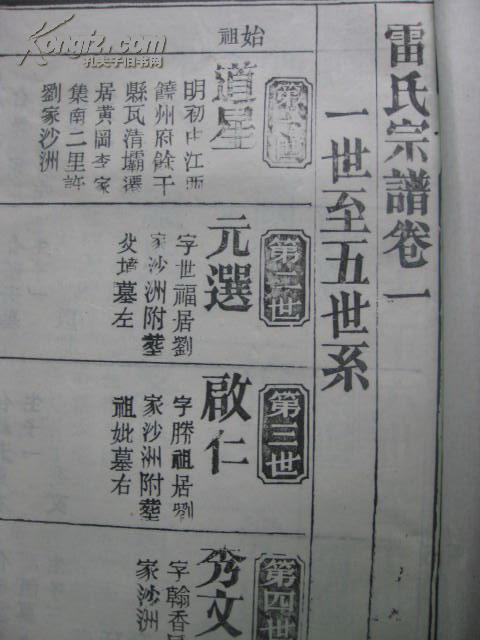 雷氏宗譜卷一
一世至五世系
始祖
第一世
道星
明初由江西
饒州府餘干
縣瓦清壩遷
居黃岡李家
集南二里許
劉家沙洲
第二世
元選
字世福居劉
家沙洲附葬
父墳墓左
第三世
啟仁
字勝祖居劉
家沙洲附葬
祖妣墓右
第四世
秀文
字翰香居
家沙洲
Kongfz.com
孔夫子旧书网